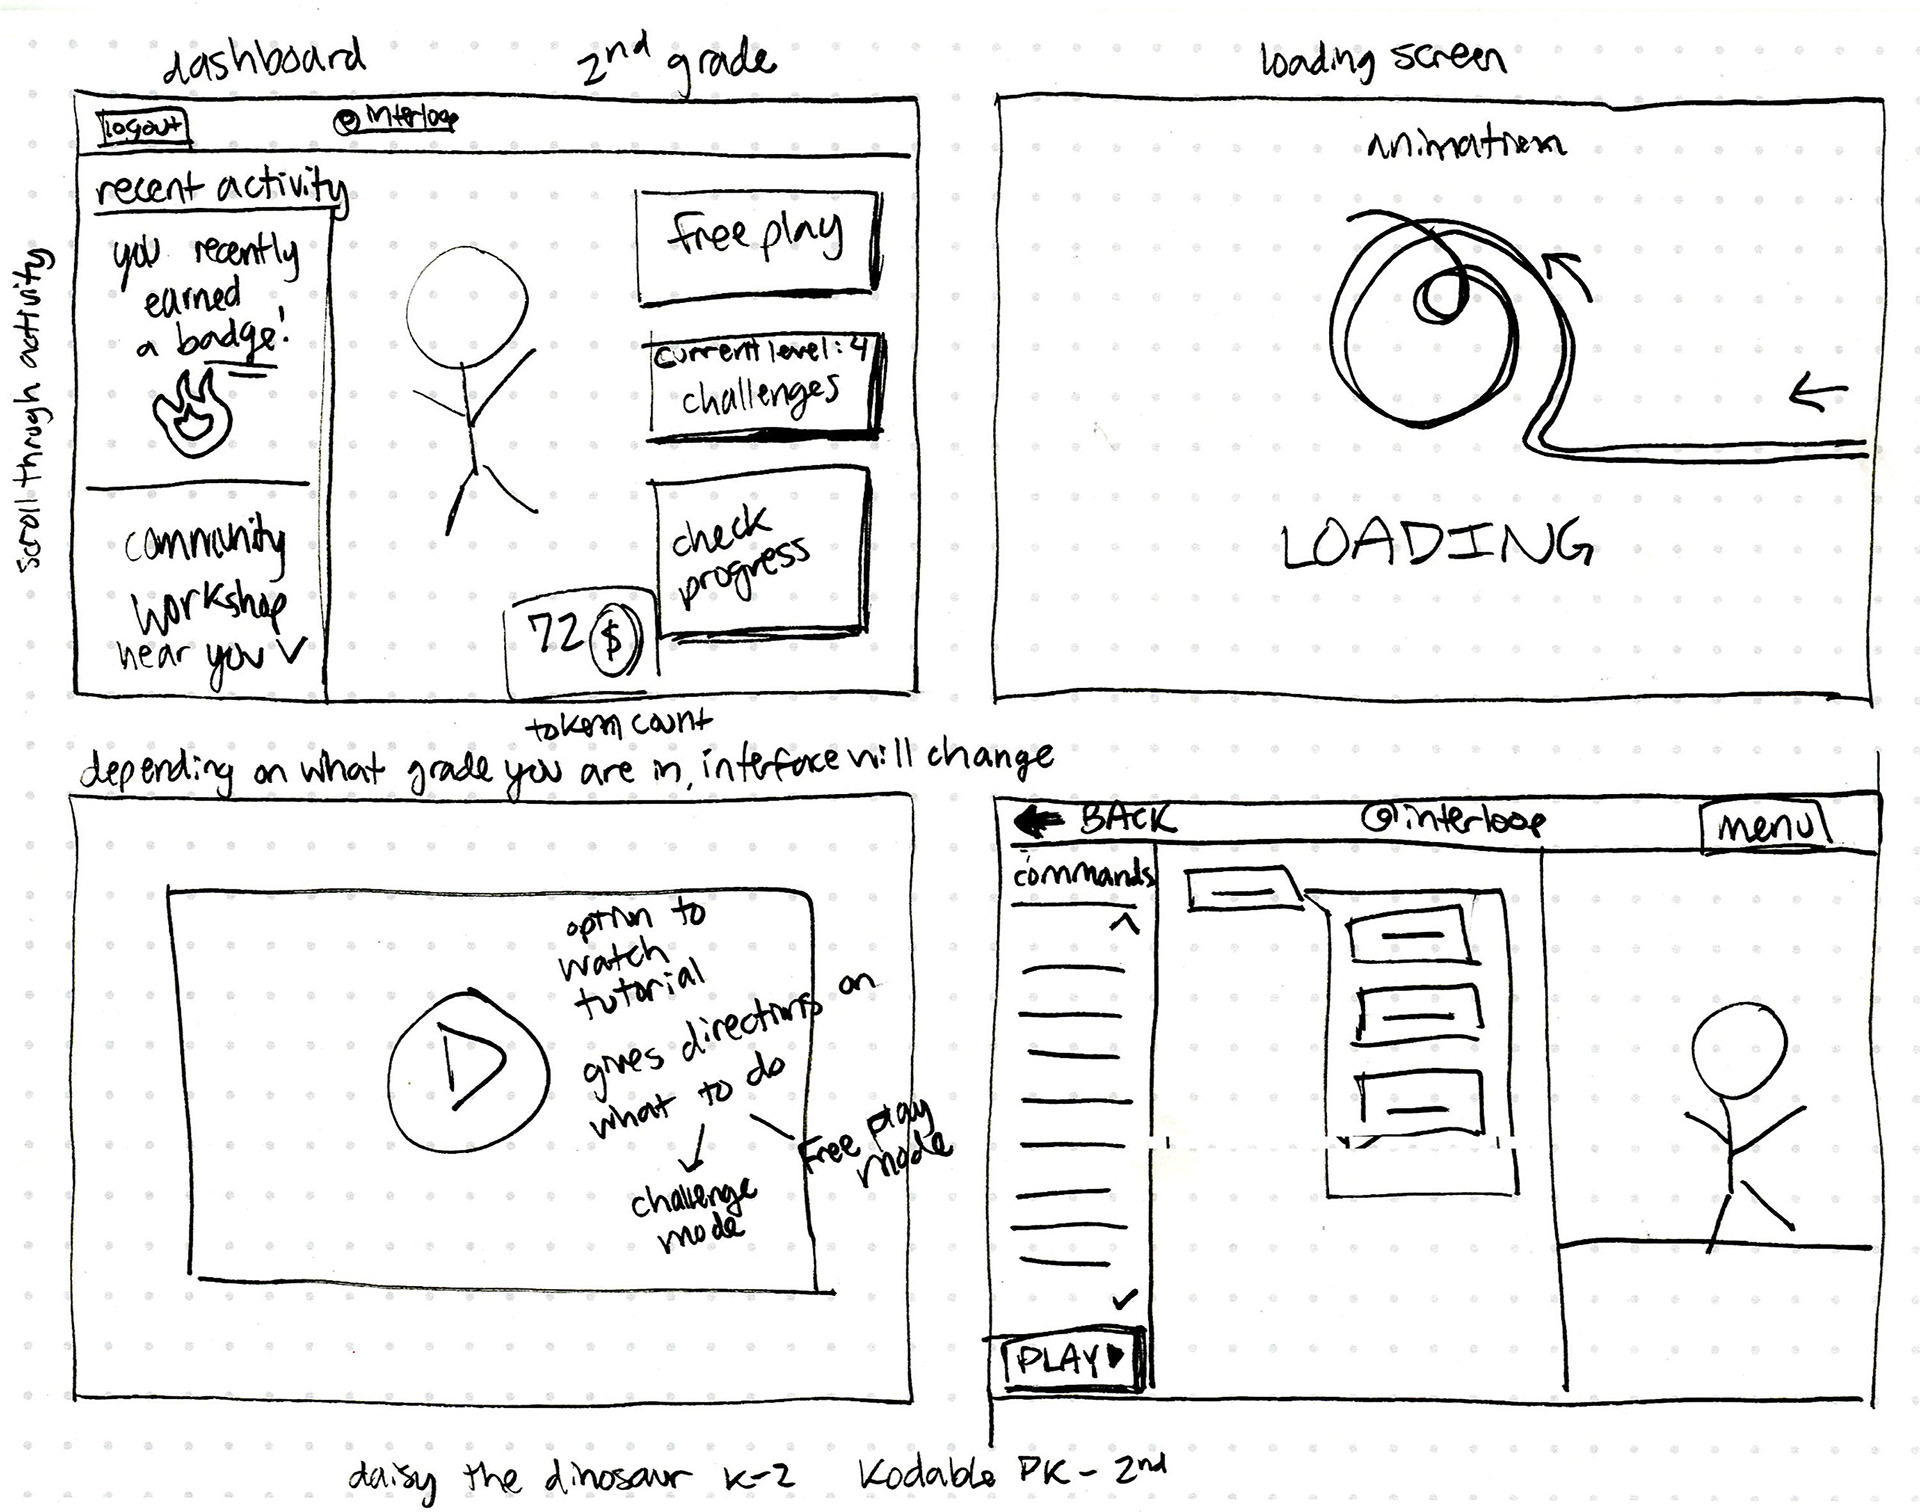 dashboard
2nd grade
logout
@interloop
recent activity
you recently
earned
a badge!
community
workshop
near you
scroll through activity
free play
current level: 4
challenges
check
progress
72 $
token count
loading screen
animation
LOADING
depending on what grade you are in, interface will change
option to
watch
tutorial
gives directions on
what to do
challenge
mode
Free play
mode
BACK
@interloop
menu
commands
PLAY
daisy the dinosaur K-2
Kodable PK - 2nd